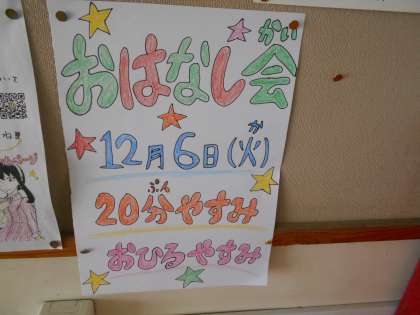 おはなし会
かい
12月6日(火)
か
20分やすみ
ぷん
おひるやすみ